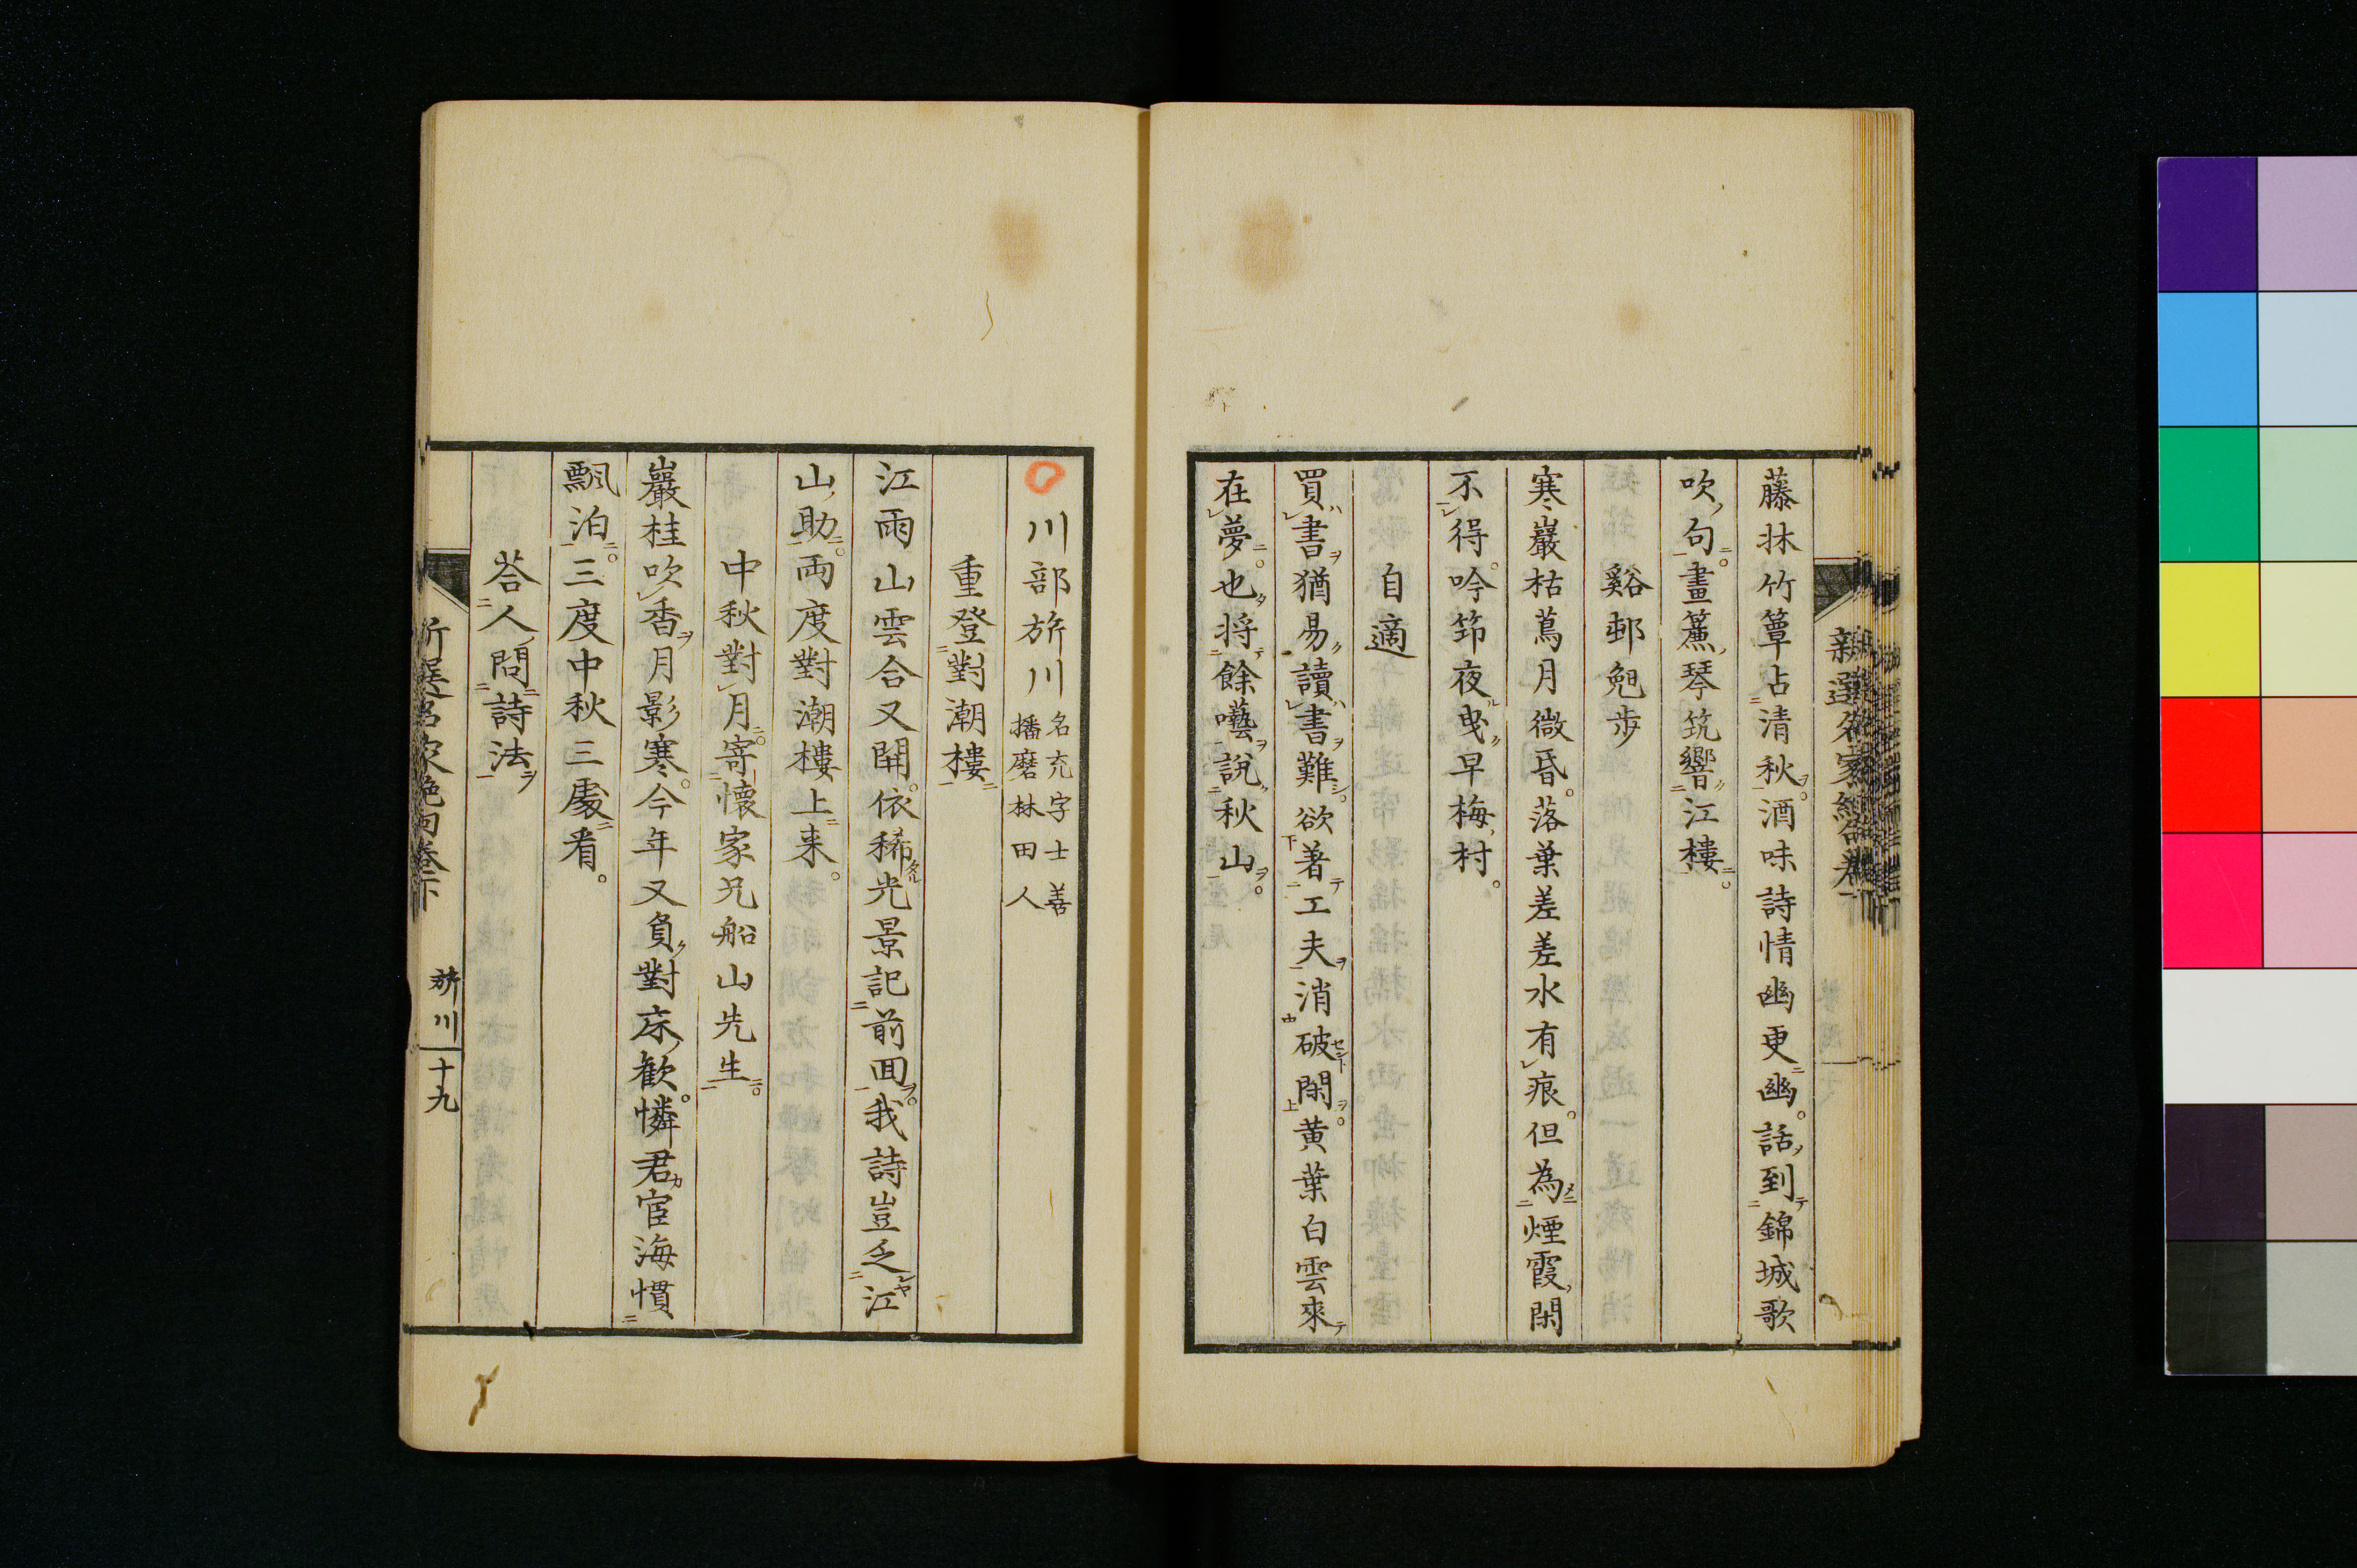 藤牀竹簟占清秋酒味詩情幽更幽話到錦城歌
吹句畫簾琴筑響江樓
谿邨晩步
寒巖枯蔦月微昏落葉差差水有痕但為煙霞閑
不得吟筇夜曳早梅村
自適
買書猶易讀書難欲著工夫消破閑黄葉白雲來
在夢也将餘囈說秋山
川部旂川
名充字士善
播磨林田人
重登對潮樓
江雨山雲合又開依稀光景記前回我詩豈乏江
山助両度對潮樓上来
中秋對月寄懷家兄船山先生
巖桂吹香月影寒今年又負對床歡憐君宦海慣
飄泊三度中秋三處看
荅人問詩法
旂川 十九